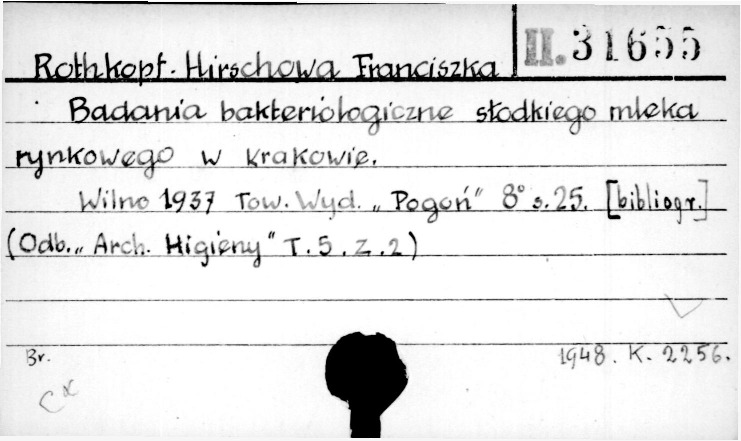 Rothkopf-Hirschowa Franciszka II. 31655
Badania bakteriologiczne słodkiego mleka
rynkowego w Krakowie.
Wilno 1937 Tow. Wyd. „Pogoń" 8° s. 25. [bibliogr.]
(Odb. „Arch. Higieny" T. 5. Z. 2)
Br. 1948. K. 2256.